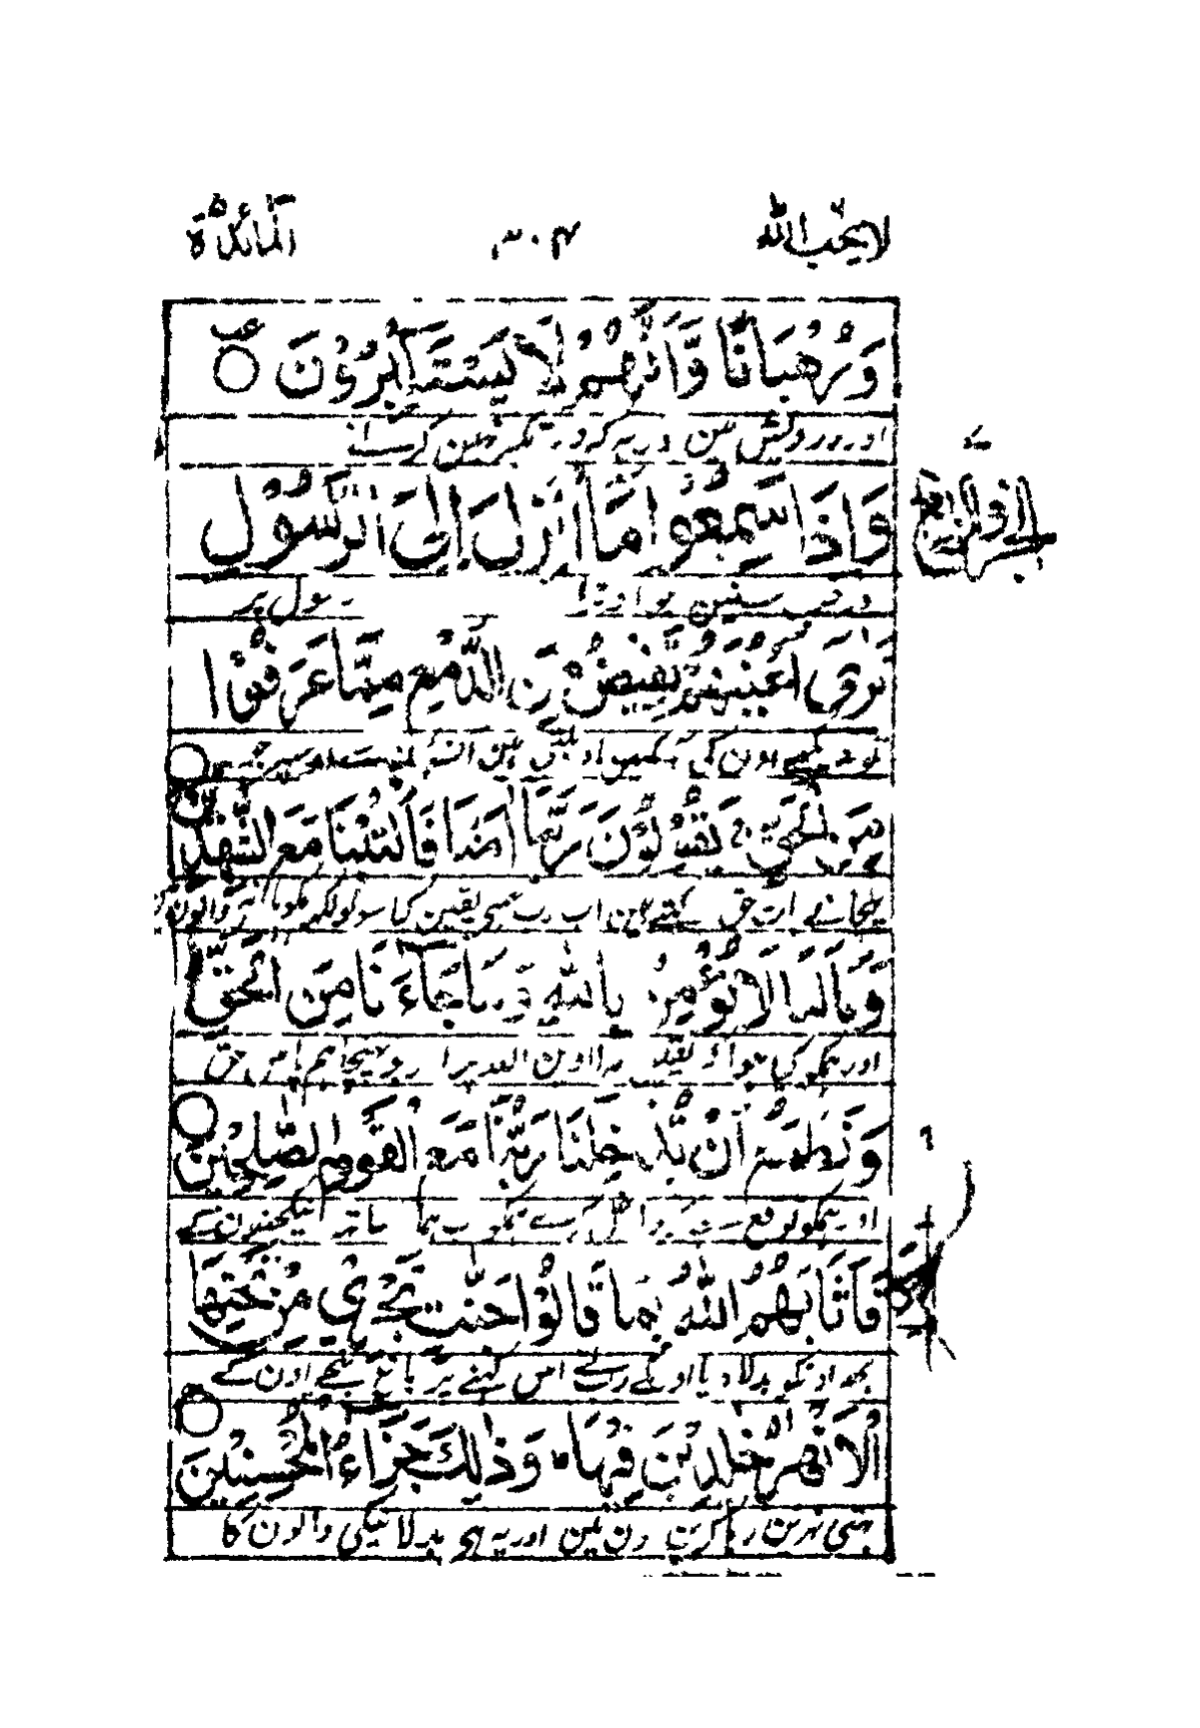 لا یحب الله ۳۰۴ المائدة
وَرُهْبَانًا وَّاَنَّهُمْ لَا يَسْتَكْبِرُوْنَ ○
اور درویش ہین اور یہ کہ وہ تکبر نہین کرتے
وَاِذَا سَمِعُوْا مَآ اُنْزِلَ اِلَى الرَّسُوْلِ
اور جب سنین جو اوترا رسول پر
تَرٰۤى اَعْيُنَهُمْ تَفِيْضُ مِنَ الدَّمْعِ مِمَّا عَرَفُوْا
تو دیکھے اون کی آنکھین اوبلتی ہین آنسو سے
مِنَ الْحَقِّ ۚ يَقُوْلُوْنَ رَبَّنَآ اٰمَنَّا فَاكْتُبْنَا مَعَ الشّٰهِدِيْنَ ○
بات حق کہتے ہین اے رب ہم نے یقین کیا سو تو لکھ ہمکو
وَمَا لَنَا لَا نُؤْمِنُ بِاللّٰهِ وَمَا جَآءَنَا مِنَ الْحَقِّ
اور ہمکو کیا ہوا کہ یقین نہ لاوین الله پر اور جو پہنچا ہم پاس حق
وَنَطْمَعُ اَنْ يُّدْخِلَنَا رَبُّنَا مَعَ الْقَوْمِ الصّٰلِحِيْنَ ○
اور ہمکو توقع ہے کہ داخل کرے ہمکو رب ہمارا ساتھ نیکبختون کے
فَاَثَابَهُمُ اللّٰهُ بِمَا قَالُوْا جَنّٰتٍ تَجْرِيْ مِنْ تَحْتِهَا
پھر اونکو بدلا دیا اونکے رب نے اس کہنے پر باغ نیچے اون کے
الْاَنْهٰرُ خٰلِدِيْنَ فِيْهَا ؕ وَذٰلِكَ جَزَآءُ الْمُحْسِنِيْنَ ○
بہتی نہرین رہا کرین اون مین اور یہ ہے بدلا نیکی والون کا